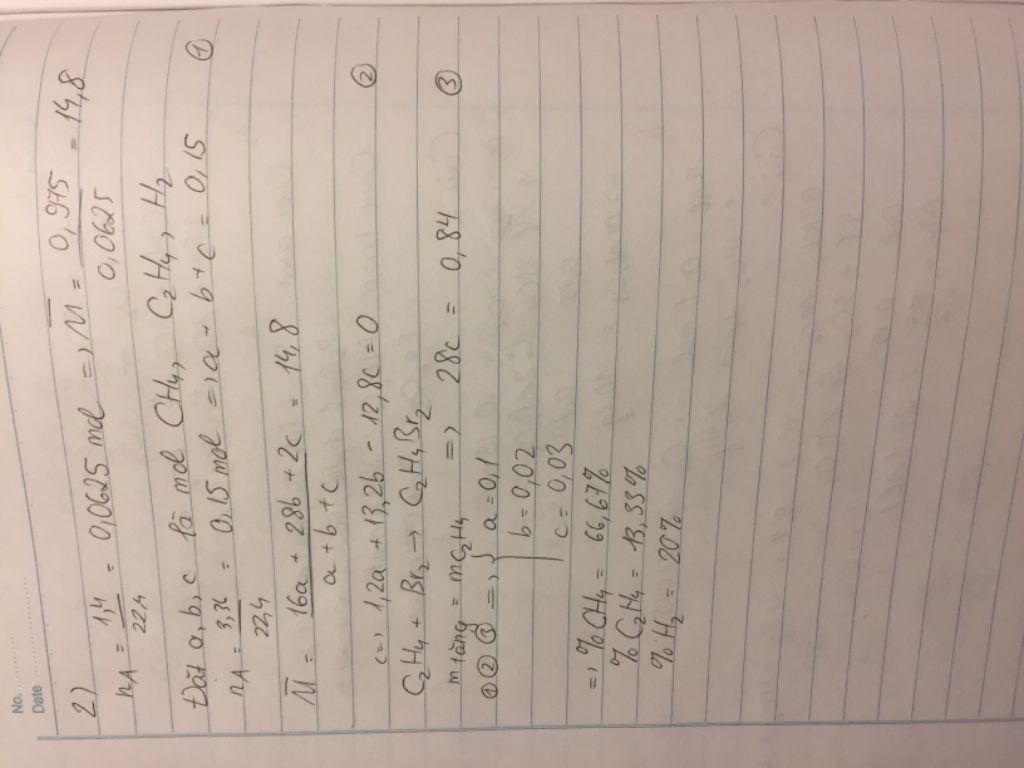 No. ..................
Date ..................
2)
n_A = 1,4/22,4 = 0,0625 mol => M̅ = 0,975/0,0625 = 14,8
Đặt a, b, c là mol CH4, C2H4, H2
n_A = 3,36/22,4 = 0,15 mol => a + b + c = 0,15 ①
M̅ = (16a + 28b + 2c)/(a + b + c) = 14,8
<=> 1,2a + 13,2b - 12,8c = 0 ②
C2H4 + Br2 → C2H4Br2
m tăng = mC2H4 => 28c = 0,84 ③
①②③ => { a = 0,1
b = 0,02
c = 0,03
=> % CH4 = 66,67%
% C2H4 = 13,33%
% H2 = 20%